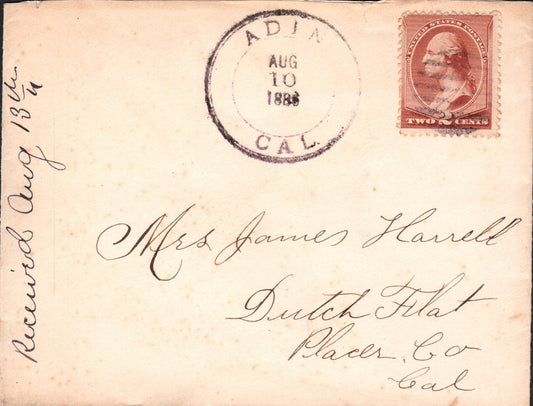 ADIN
AUG
10
CAL.
UNITED STATES POSTAGE
TWO 2 CENTS
Received Aug 13th
Mrs James Harrell
Dutch Flat
Placer Co
Cal